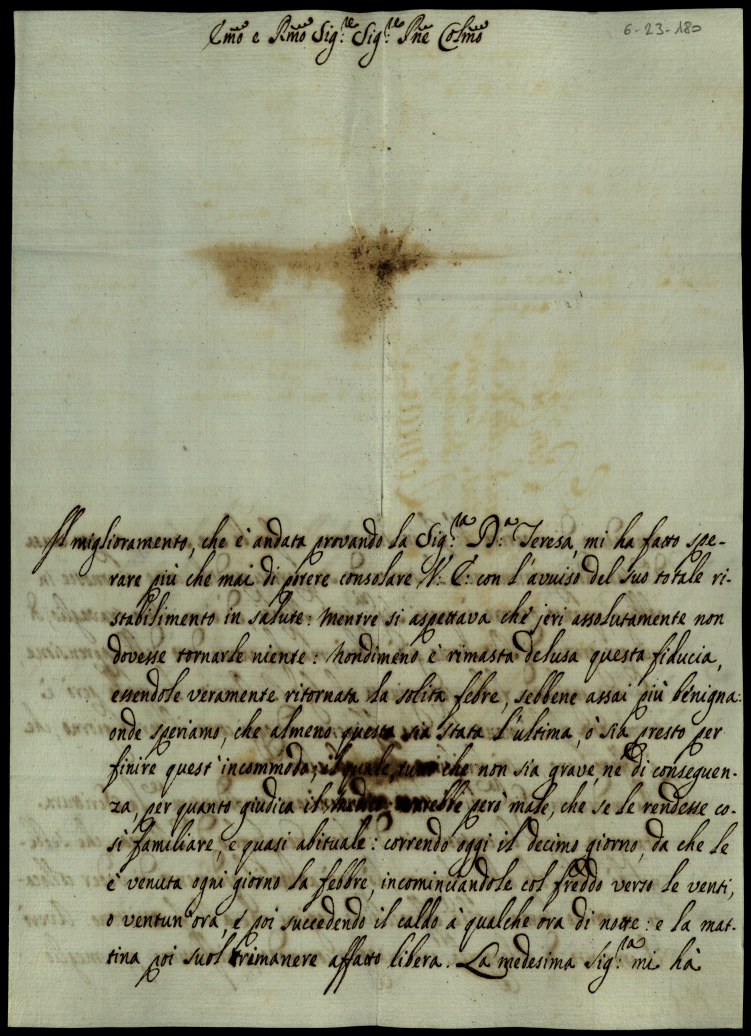 Illmõ e Rmõ Sig.re Sig.re Pnẽ Colmõ
6-23-180
Il miglioramento, che è andata provando la Sig.ra D.a Teresa, mi ha fatto spe-
rare più che mai di potere consolare V: E: con l'avviso del suo totale ri-
stabilimento in salute: mentre si aspettava che jeri assolutamente non
dovesse tornarle niente: Nondimeno è rimasta delusa questa fiducia,
essendole veramente ritornata la solita febre, sebbene assai più benigna:
onde speriamo, che almeno questa sia stata l'ultima, ò sia presto per
finire quest'incommodo; il quale, che non sia grave, nè di conseguen-
za, per quanto giudica il medico, però male, che se le rendesse co-
sì familiare, e quasi abituale: correndo oggi il decimo giorno, da che le
è venuta ogni giorno la febbre, incominciandole col freddo verso le venti,
o ventun'ora, e poi succedendo il caldo à qualche ora di notte: e la mat-
tina poi suol rimanere affatto libera. La medesima Sig.ra mi hà